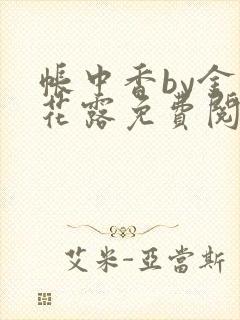 帳中香by金
花露免費閱
艾米-亞當斯